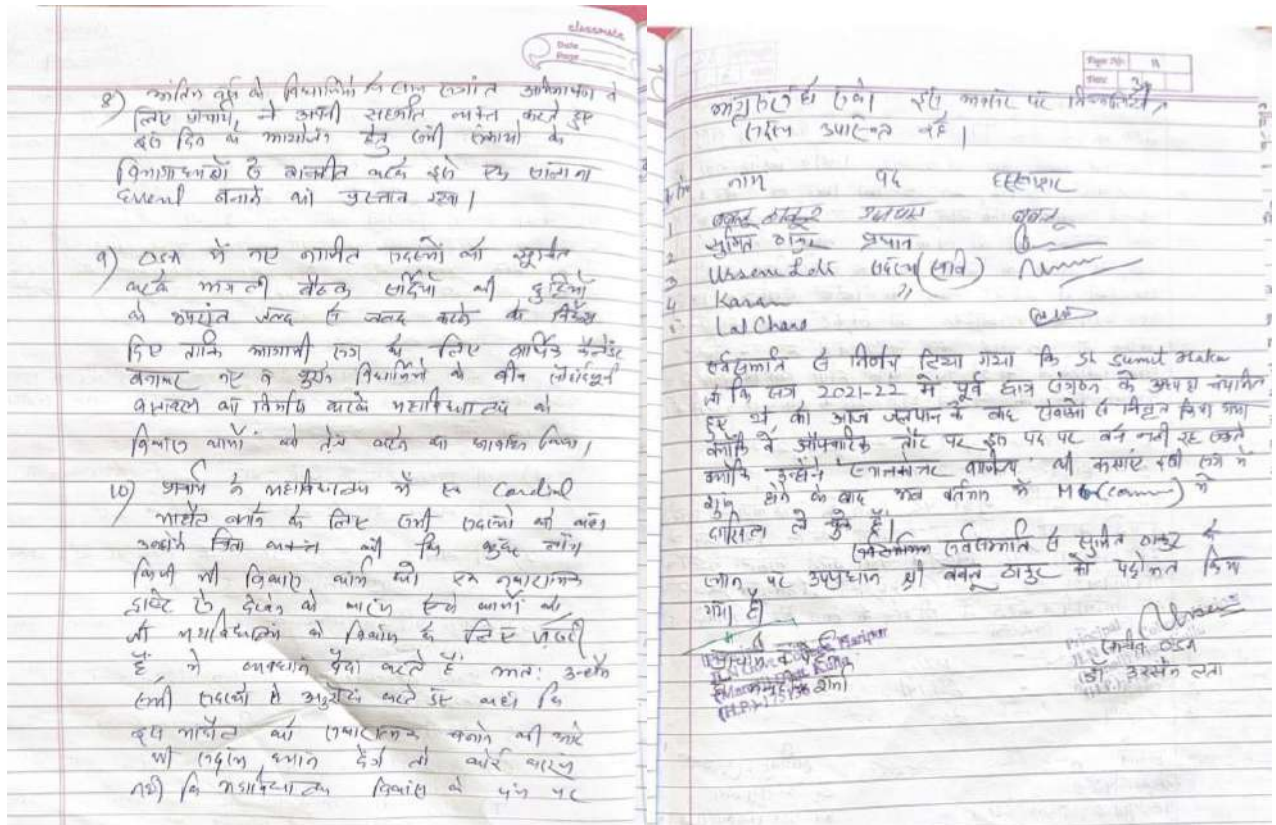 classmate
Date
Page
8) अंतिम वर्ष के विद्यार्थियों के साथ
लिए प्राचार्य ने अपनी सहमति व्यक्त करते हुए
इस दिन के आयोजन हेतु सभी संकायों के
विभागाध्यक्षों से बातचीत करके इसे एक सालाना
event बनाने का प्रस्ताव रखा।
9) OSA में नए नामित सदस्यों को सूचित
करके अगली बैठक सर्दियों की छुट्टियों
के उपरांत जल्द से जल्द करने के निर्देश
दिए ताकि आगामी सत्र के लिए वार्षिक कैलेंडर
बनाकर नए व पुराने विद्यार्थियों के बीच
का निर्माण करके महाविद्यालय के
विकास कार्यों को तेज करने का किया।
10) प्राचार्य ने महाविद्यालय में एक Cordial
माहौल बनाने के लिए सभी सदस्यों को कहा
उन्होंने चिंता व्यक्त की कि कुछ लोग
किसी भी विकास कार्य को एक नकारात्मक
दृष्टि से देखने के कारण ऐसे कार्यों को
जो महाविद्यालय के विकास के लिए जरूरी
हैं में व्यवधान पैदा करते हैं अतः उन्होंने
सभी सदस्यों से अनुरोध करते हुए कहा कि
इस माहौल को सकारात्मक बनाने की ओर
भी सदस्य ध्यान देंगे तो कोई कारण
नहीं कि महाविद्यालय विकास के पथ पर
Page No. 11
Date
अग्रसर न हो सके। इस अवसर पर निम्नलिखित
सदस्य उपस्थित रहे।
नाम पद हस्ताक्षर
1 बबलू ठाकुर उपाध्यक्ष बबलू
2 सुमित ठाकुर प्रधान
3 Ursem Lata सदस्य (सचिव)
4 Karan "
5 Lal Chand
सर्वसम्मति से निर्णय लिया गया कि Sh Sumit Thakur
जो कि सत्र 2021-22 में पूर्व छात्र संगठन के अध्यक्ष नामित
हुए थे को आज जलपान के बाद सेवाओं से निवृत किया गया
क्योंकि वे औपचारिक तौर पर इस पद पर बने नहीं रह सकते
क्योंकि उन्होंने 'स्नातकोत्तर वाणिज्य' की कक्षाएं इसी सत्र में
शुरू होने के बाद अब वर्तमान में M (comm) में
दाखिला ले चुके हैं।
सर्वसम्मति से सुमित ठाकुर के
स्थान पर उपप्रधान श्री बबलू ठाकुर को पदोन्नत किया
गया है।
सचिव OSA
डॉ उरसेम लता
(H.P.) 175136